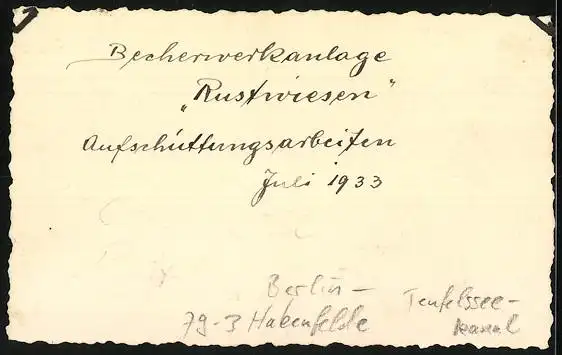 Becherwerkanlage
„Rustwiesen"
Aufschüttungsarbeiten
Juli 1933
Berlin-
79-3 Hakenfelde
Teufelssee-
kanal